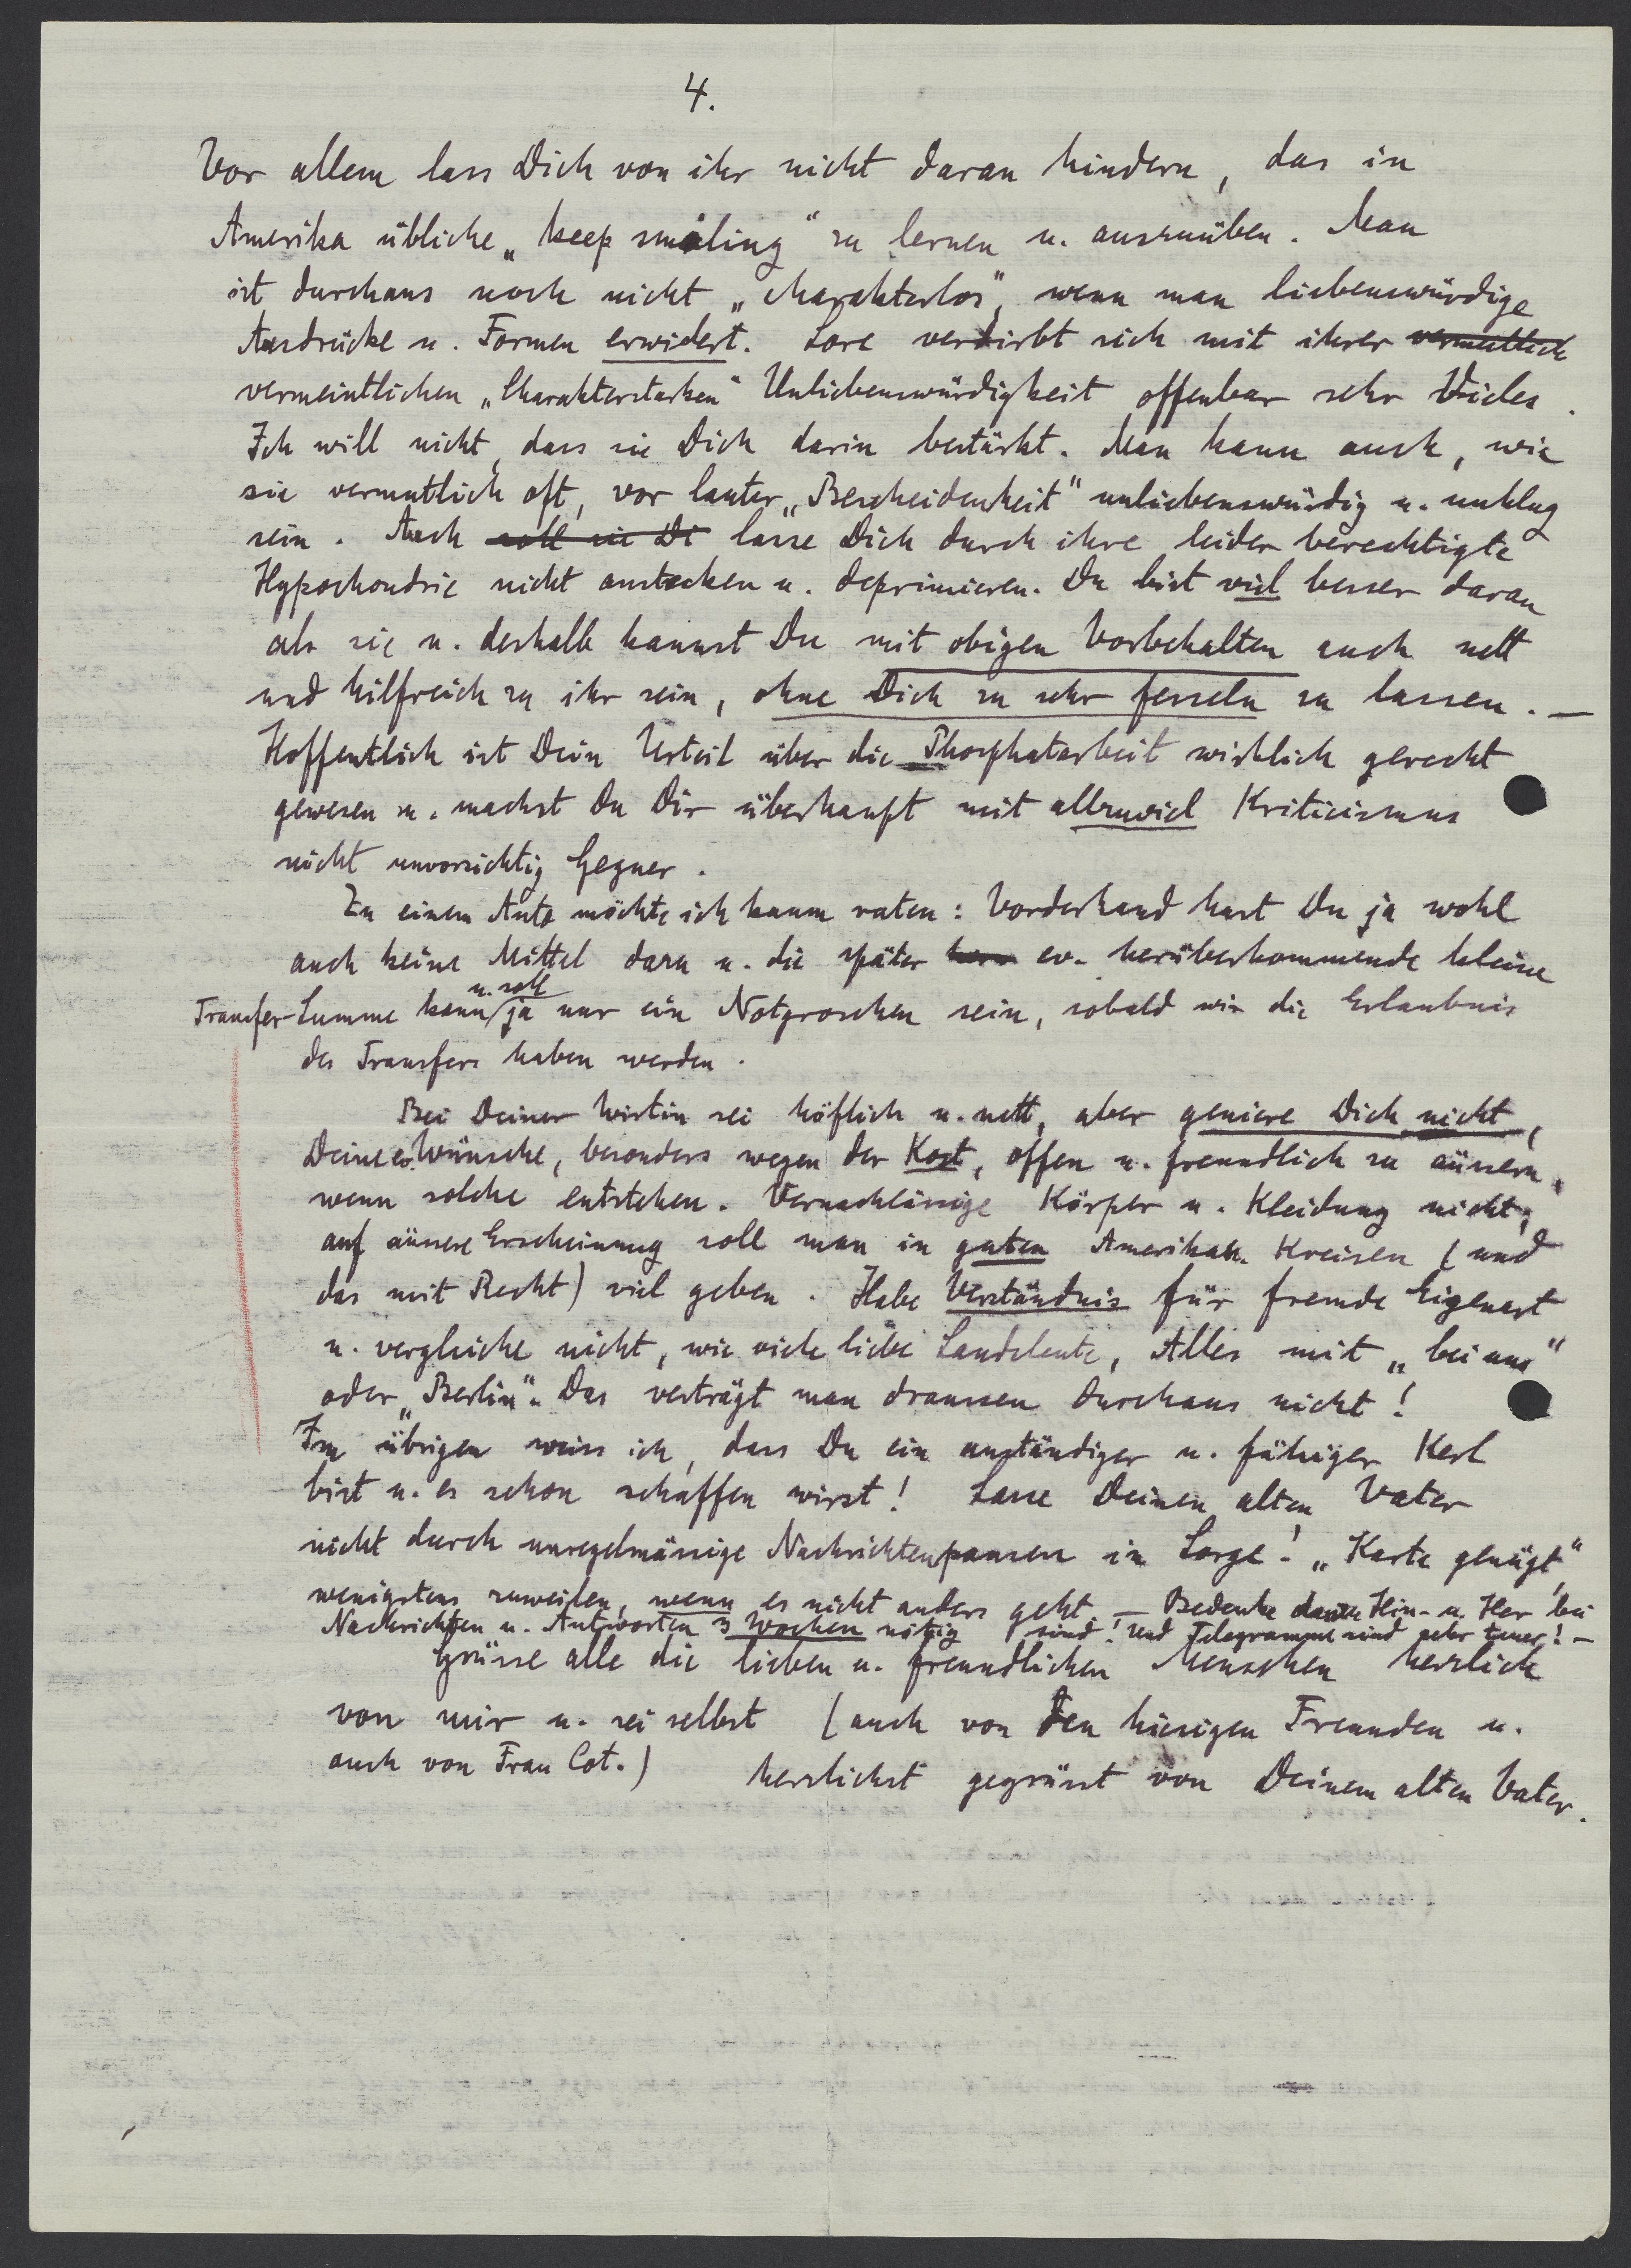 4.
Vor allem lass Dich von ihr nicht daran hindern, das in
Amerika übliche „keep smiling“ zu lernen u. auszuüben. Man
ist durchaus noch nicht „charakterlos“, wenn man liebenswürdige
Ausdrücke u. Formen erwidert. Lore verdirbt sich mit ihrer vermutlich
vermeintlichen „Charakterstarken“ Unliebenswürdigkeit offenbar sehr Vieles.
Ich will nicht, dass sie Dich darin bestärkt. Man kann auch, wie
sie vermutlich oft, vor lauter „Bescheidenheit“ unliebenswürdig u. unklug
sein. Auch soll sie Di lasse Dich durch ihre leider berechtigte
Hypochondrie nicht anstecken u. deprimieren. Du bist viel besser daran
als sie u. deshalb kannst Du mit obigen Vorbehalten auch nett
und hilfreich zu ihr sein, ohne Dich zu sehr fesseln zu lassen. —
Hoffentlich ist Dein Urteil über die Phosphatarbeit wirklich gerecht
gewesen u. machst Du Dir überhaupt mit allzuviel Kriticismus
nicht unvorsichtig Gegner.
Zu einem Auto möchte ich kaum raten: Vorderhand hast Du ja wohl
auch keine Mittel dazu u. die später ev. herüberkommende kleine
Transfer-Summe kann u. soll ja nur ein Notgroschen sein, sobald wir die Erlaubnis
des Transfers haben werden.
Bei Deiner Wirtin sei höflich u. nett, aber geniere Dich nicht,
Deine ev. Wünsche, besonders wegen der Kost, offen u. freundlich zu äussern,
wenn solche entstehen. Vernachlässige Körper u. Kleidung nicht;
auf äussere Erscheinung soll man in guten Amerikan. Kreisen (und
das mit Recht) viel geben. Habe Verständnis für fremde Eigenart
u. vergleiche nicht, wie viele liebe Landsleute, Alles mit „bei uns“
oder „Berlin“. Das verträgt man draussen durchaus nicht!
Im übrigen weiss ich, dass Du ein anständiger u. fähiger Kerl
bist u. es schon schaffen wirst! Lasse Deinen alten Vater
nicht durch unregelmässige Nachrichtenpausen in Sorge! „Karte genügt“,
wenigstens zuweilen, wenn es nicht anders geht. — Bedenke dass Hin- u. Her bei
Nachrichten u. Antworten 3 Wochen nötig sind! Und Telegramme sind sehr teuer! —
Grüsse alle die lieben u. freundlichen Menschen herzlich
von mir u. sei selbst (auch von den hiesigen Freunden u.
auch von Frau Cot.) herzlichst gegrüsst von Deinem alten Vater.